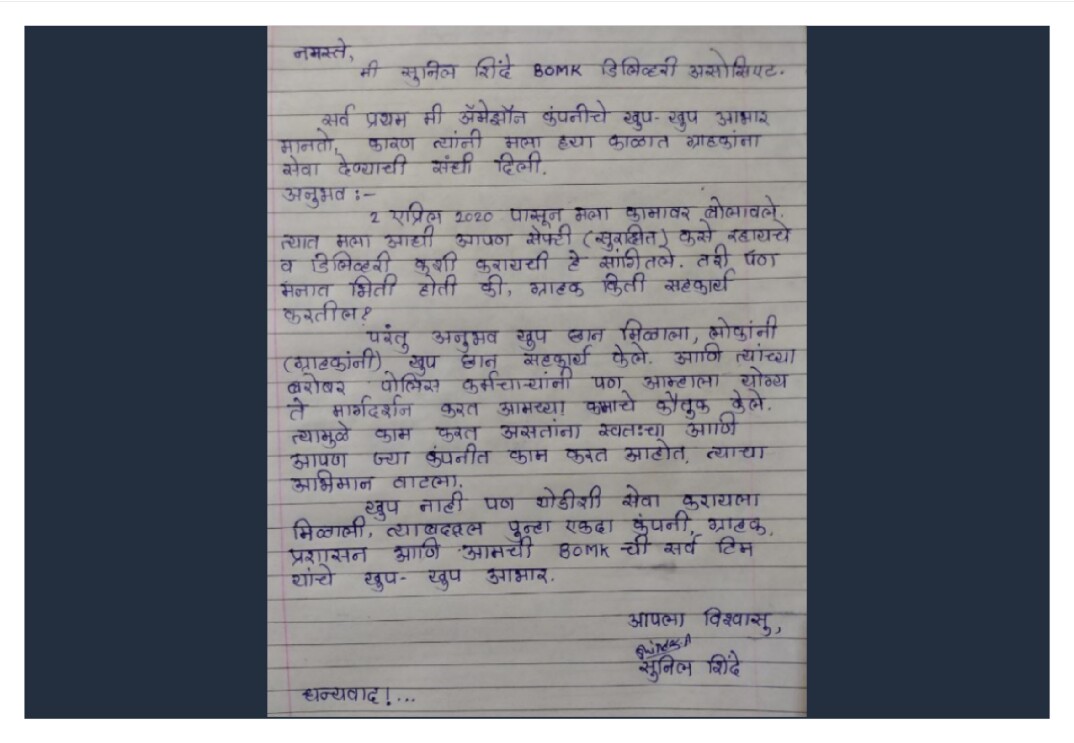 नमस्ते,
मी सुनिल शिंदे BOMK डिलिव्हरी असोसिएट.
सर्व प्रथम मी ॲमेझॉन कंपनीचे खुप-खुप आभार
मानतो, कारण त्यांनी मला ह्या काळात ग्राहकांना
सेवा देण्याची संधी दिली.
अनुभव :-
2 एप्रिल 2020 पासून मला कामावर बोलावले.
त्यात मला आधी आपण सेफ्टी (सुरक्षित) कसे रहायचे
व डिलिव्हरी कशी करायची हे सांगितले. तरी पण
मनात भिती होती की, ग्राहक किती सहकार्य
करतील?
परंतु अनुभव खुप छान मिळाला, लोकांनी
(ग्राहकांनी) खुप छान सहकार्य केले. आणि त्यांच्या
बरोबर पोलिस कर्मचाऱ्यांनी पण आम्हाला योग्य
ते मार्गदर्शन करत आमच्या कमाचे कौतुक केले.
त्यामुळे काम करत असतांना स्वतःचा आणि
आपण ज्या कंपनीत काम करत आहोत, त्याचा
अभिमान वाटला.
खुप नाही पण थोडीशी सेवा करायला
मिळाली, त्याबद्दल पुन्हा एकदा कंपनी, ग्राहक,
प्रशासन आणि आमची BOMK ची सर्व टिम
यांचे खुप-खुप आभार.
आपला विश्वासु,
सुनिल शिंदे
धन्यवाद!...